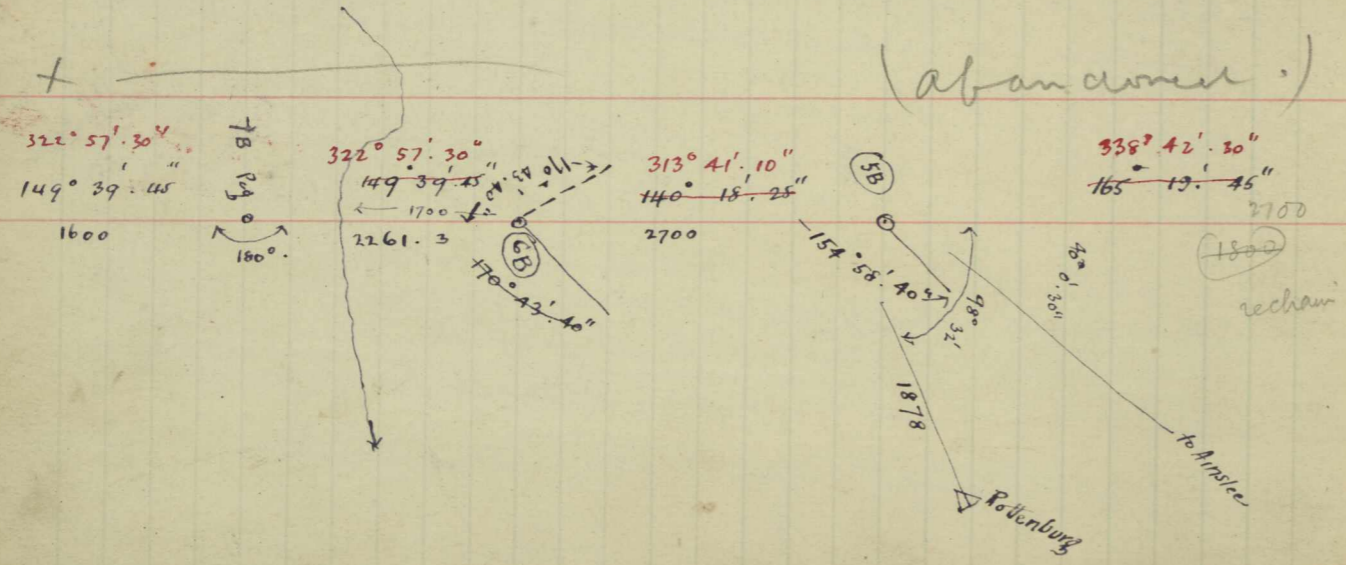 (abandoned.)
322° 57'. 30"
149° 39'. 45"
1600
7B Peg
180°.
322° 57'. 30"
149° 39'. 45"
1700
2261. 3
6B
170° 43'. 40"
313° 41'. 10"
140° 18'. 25"
2700
5B
154° 58'. 40"
98° 32'
1878
Rottenburg
0'. 30"
to Ainslee
338° 42'. 30"
165° 19'. 45"
2700
1800
rechain